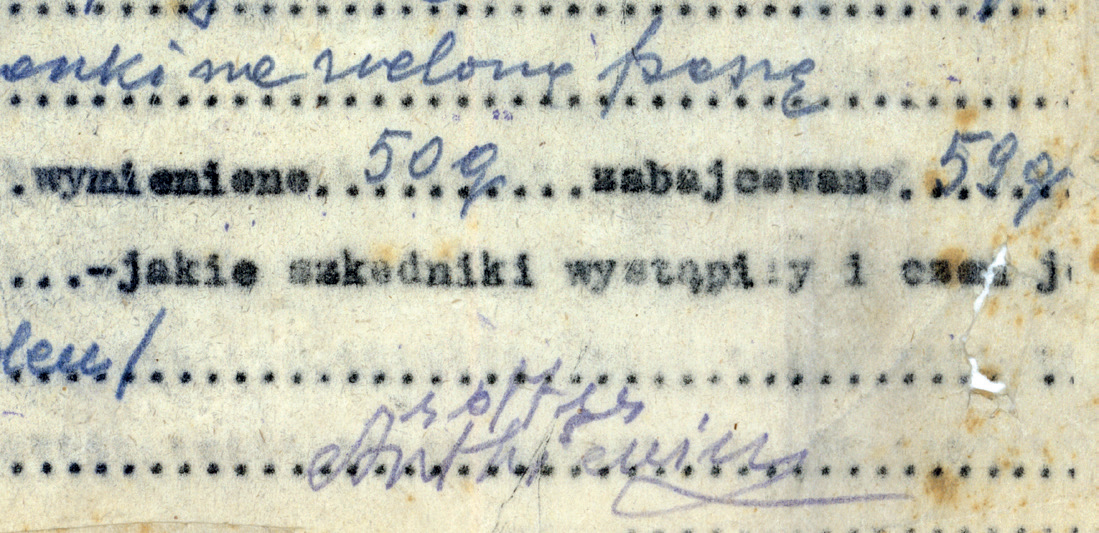 anki na zieloną paszę
.wymienione. 50 g ...zabajcowane. 59 g
...-jakie szkodniki wystąpiły i czem j
sołtys
Antkiewicz